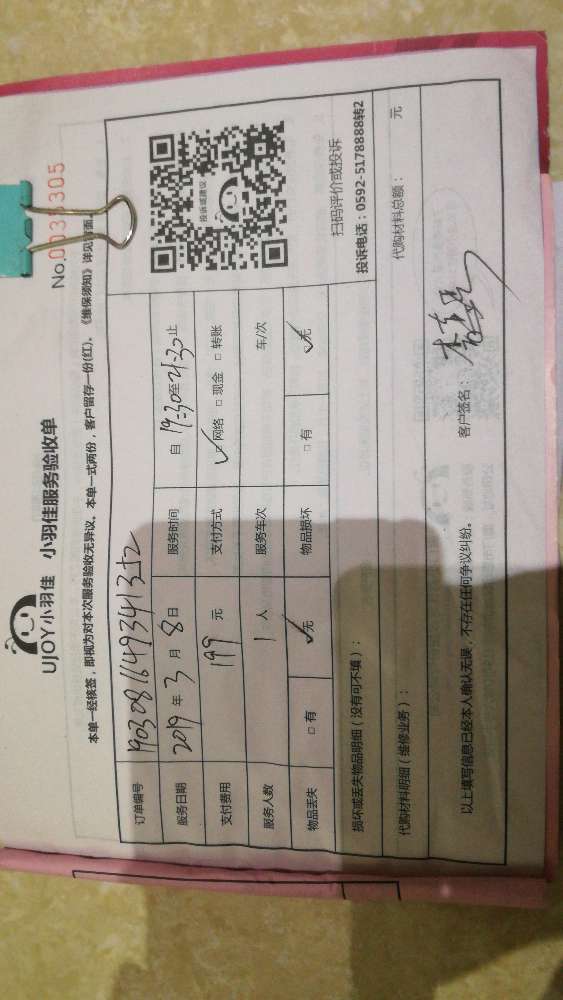 UJOY小羽佳 小羽佳服务验收单
No.003
305
本单一经核签，即视为对本次服务验收无异议。本单一式两份，客户留存一份(红)。《维保须知》详见背面。
订单编号 1903081649341352
服务日期 2019 年 3 月 8 日 服务时间 自 19:30 至 21:30 止
支付费用 199 元 支付方式 ☑网络 □现金 □转账
服务人数 1 人 服务车次 车/次
物品丢失 □有 ☑无 物品损坏 □有 ☑无
投诉或建议
扫码评价或投诉
投诉电话：0592-5178888转2
损坏或丢失物品明细（没有可不填）：
代购材料明细（维修业务）： 代购材料总额： 元
以上填写信息已经本人确认无误，不存在任何争议纠纷。 客户签名：